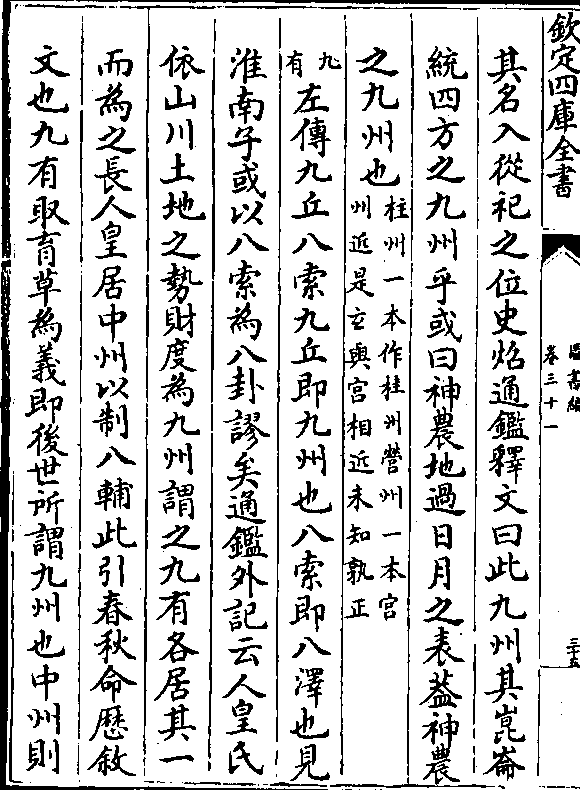 欽定四庫全書
圖書編
卷三十一
三十五
其名入從祀之位史炤通鑑釋文曰此九州其崑崙
統四方之九州乎或曰神農地過日月之表葢神農
之九州也柱州一本作桂州營州一本宫
州近是玄與宫相近未知孰正
九有左傳九丘八索九丘即九州也八索即八澤也見
淮南子或以八索為八卦謬矣通鑑外記云人皇氏
依山川土地之勢財度為九州謂之九有各居其一
而為之長人皇居中州以制八輔此引春秋命歴敘
文也九有取育草為義即後世所謂九州也中州則